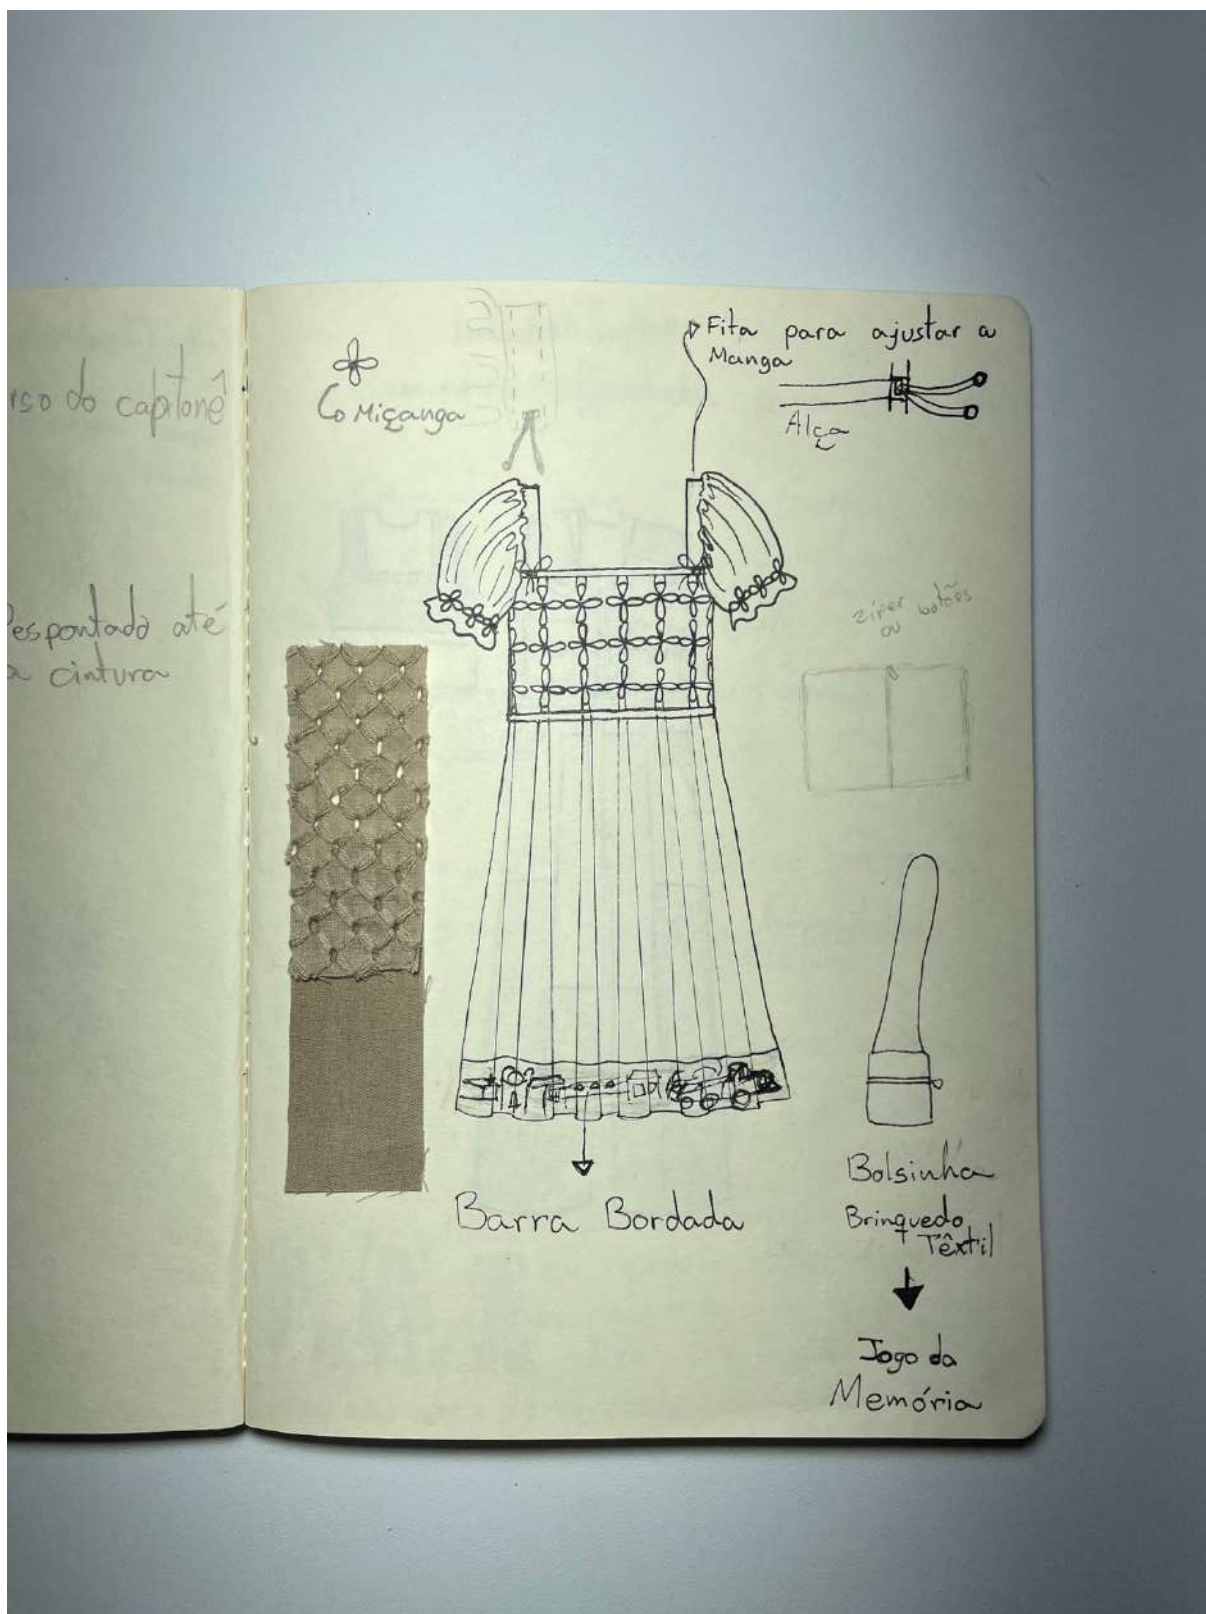 rso do capitonê
Despontado até
a cintura
Miçanga
Fita para ajustar a
Manga
Alça
zíper botões
ou
Barra Bordada
Bolsinha
Brinquedo
Têxtil
Jogo da
Memória